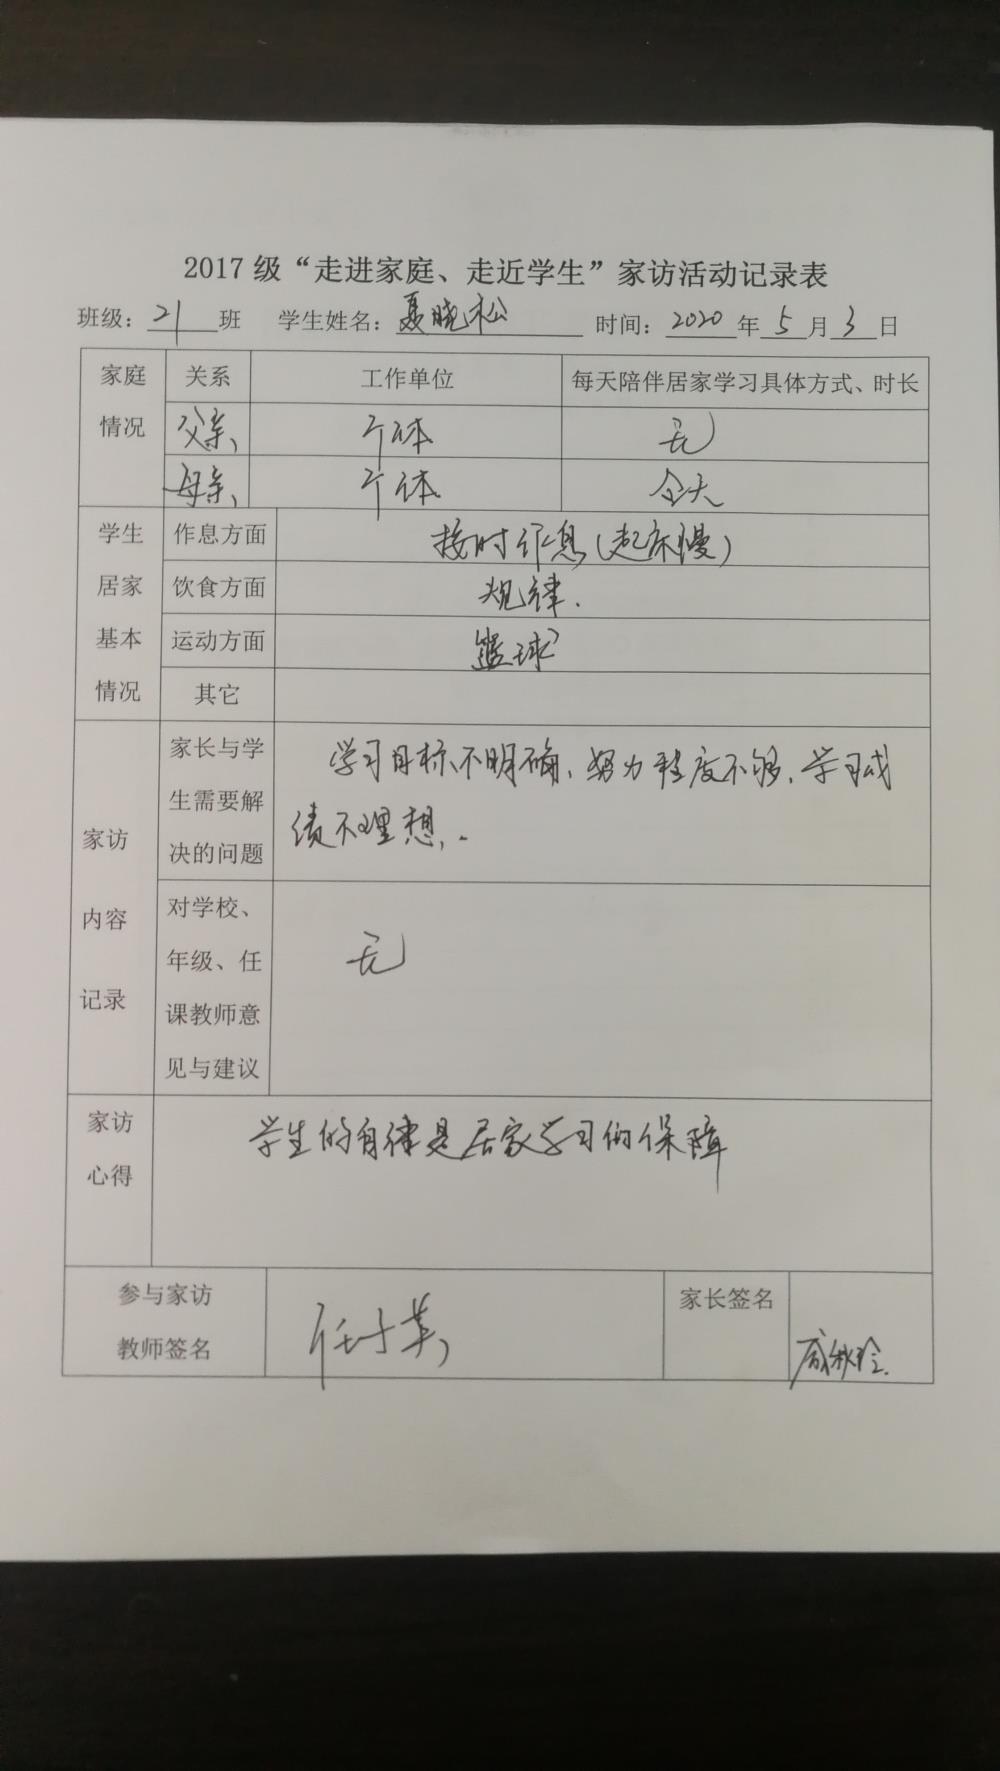 2017级“走进家庭、走近学生”家访活动记录表
班级：21班 学生姓名：聂晓松 时间：2020年5月3日
家庭情况 关系 工作单位 每天陪伴居家学习具体方式、时长
父亲 个体 无
母亲 个体 全天
学生居家基本情况
作息方面 按时作息（起床慢）
饮食方面 规律.
运动方面 篮球
其它
家访内容记录
家长与学
生需要解
决的问题
学习目标不明确、努力程度不够、学习成
绩不理想.
对学校、
年级、任
课教师意
见与建议
无
家访
心得
学生的自律是居家学习的保障
参与家访
教师签名
家长签名